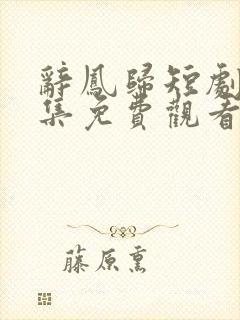 辭鳳歸短劇
集免費觀看
藤原熏